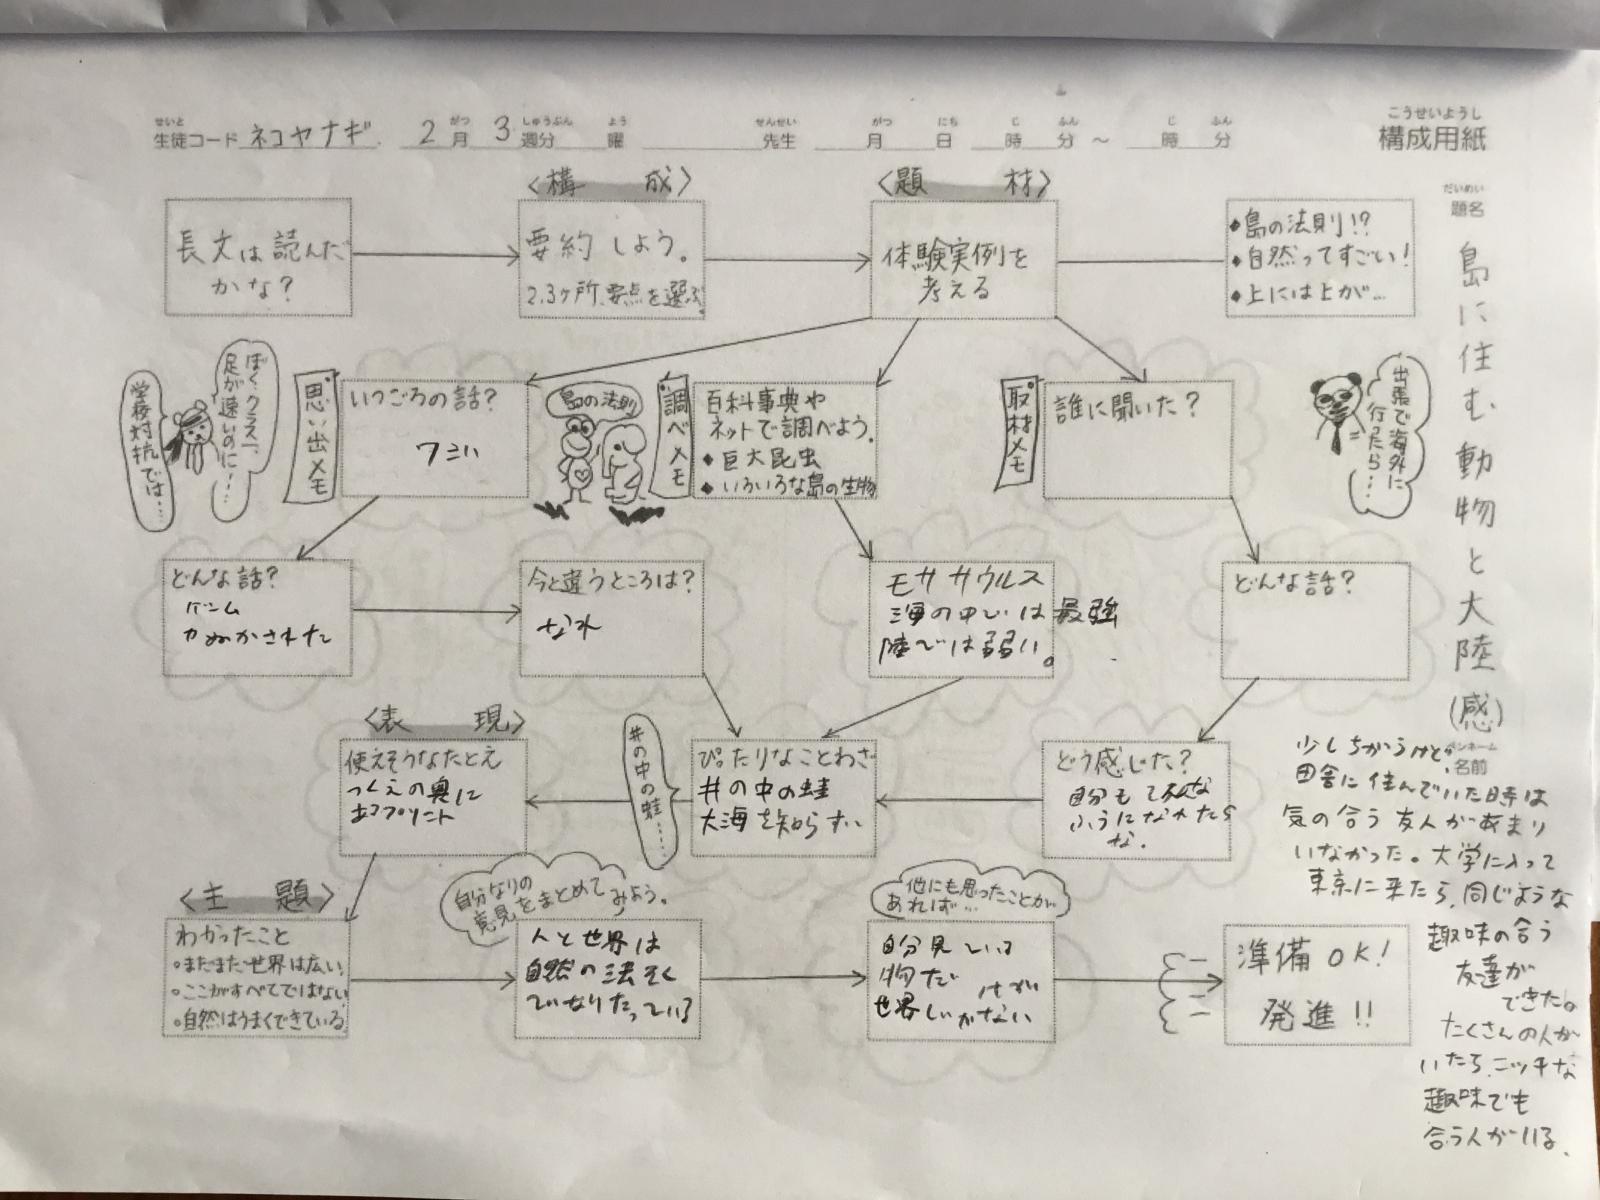 こうせいようし
構成用紙
せいと
生徒コード ネコヤナギ. 2 月 3 週分 曜 先生 月 日 時 分 〜 時 分
がつ しゅうぶん よう せんせい がつ にち じ ふん じ ふん
だいめい
題名
島に住む動物と大陸(感)
長文は読んだ
かな?
〈構 成〉
要約しよう。
2.3ヶ所、要点を選ぶ。
〈題 材〉
体験実例を
考える
◆島の法則!?
◆自然ってすごい!
◆上には上が…
ぼく、クラス一、
足が速いのに…
学校対抗では…
思い出メモ
いつごろの話?
島の法則
調べメモ
百科事典や
ネットで調べよう。
◆巨大昆虫
◆いろいろな島の生物
取材メモ
誰に聞いた?
出張で海外に
行ったら…
どんな話?
ゲーム
今と違うところは?
モササウルス
海の中では最強
陸では弱い。
どんな話?
〈表 現〉
使えそうなたとえ
つくえの奥に
プリント
井の中の蛙……
ぴったりなことわざ
井の中の蛙
大海を知らず
どう感じた?
自分も
な.
ペンネーム
名前
少しちがうけど、
田舎に住んでいた時は
気の合う友人があまり
いなかった。大学に入って
東京に来たら、同じような
趣味の合う
友達が
できた。
たくさんの人が
いたら、ニッチな
趣味でも
合う人がいる.
〈主 題〉
わかったこと
◦まだまだ世界は広い
◦ここがすべてではない
◦自然はうまくできている
自分なりの
意見をまとめてみよう。
人と世界は
自然の法そく
でなりたっている
他にも思ったことが
あれば…
自分見ている
物だけが
世界じゃない
準備OK!
発進!!